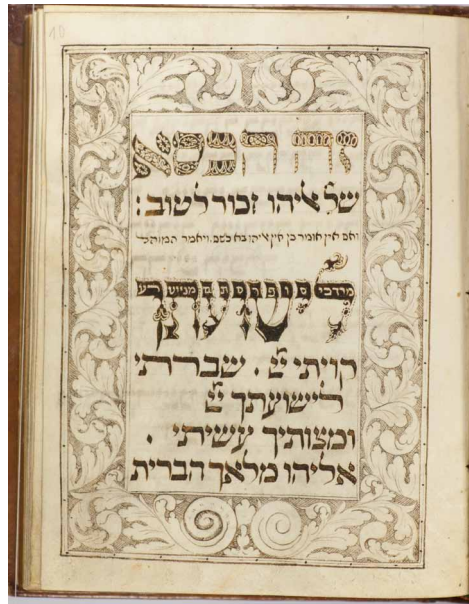 זה הכסא
של אליהו זכור לטוב:
ואם אין אומר כן אין אליהו בא לשם. ויאמר המוהל
מרדכי סופר סתם
לישועתך
קויתי יי. שברתי
לישועתך יי
ומצותיך עשיתי.
אליהו מלאך הברית